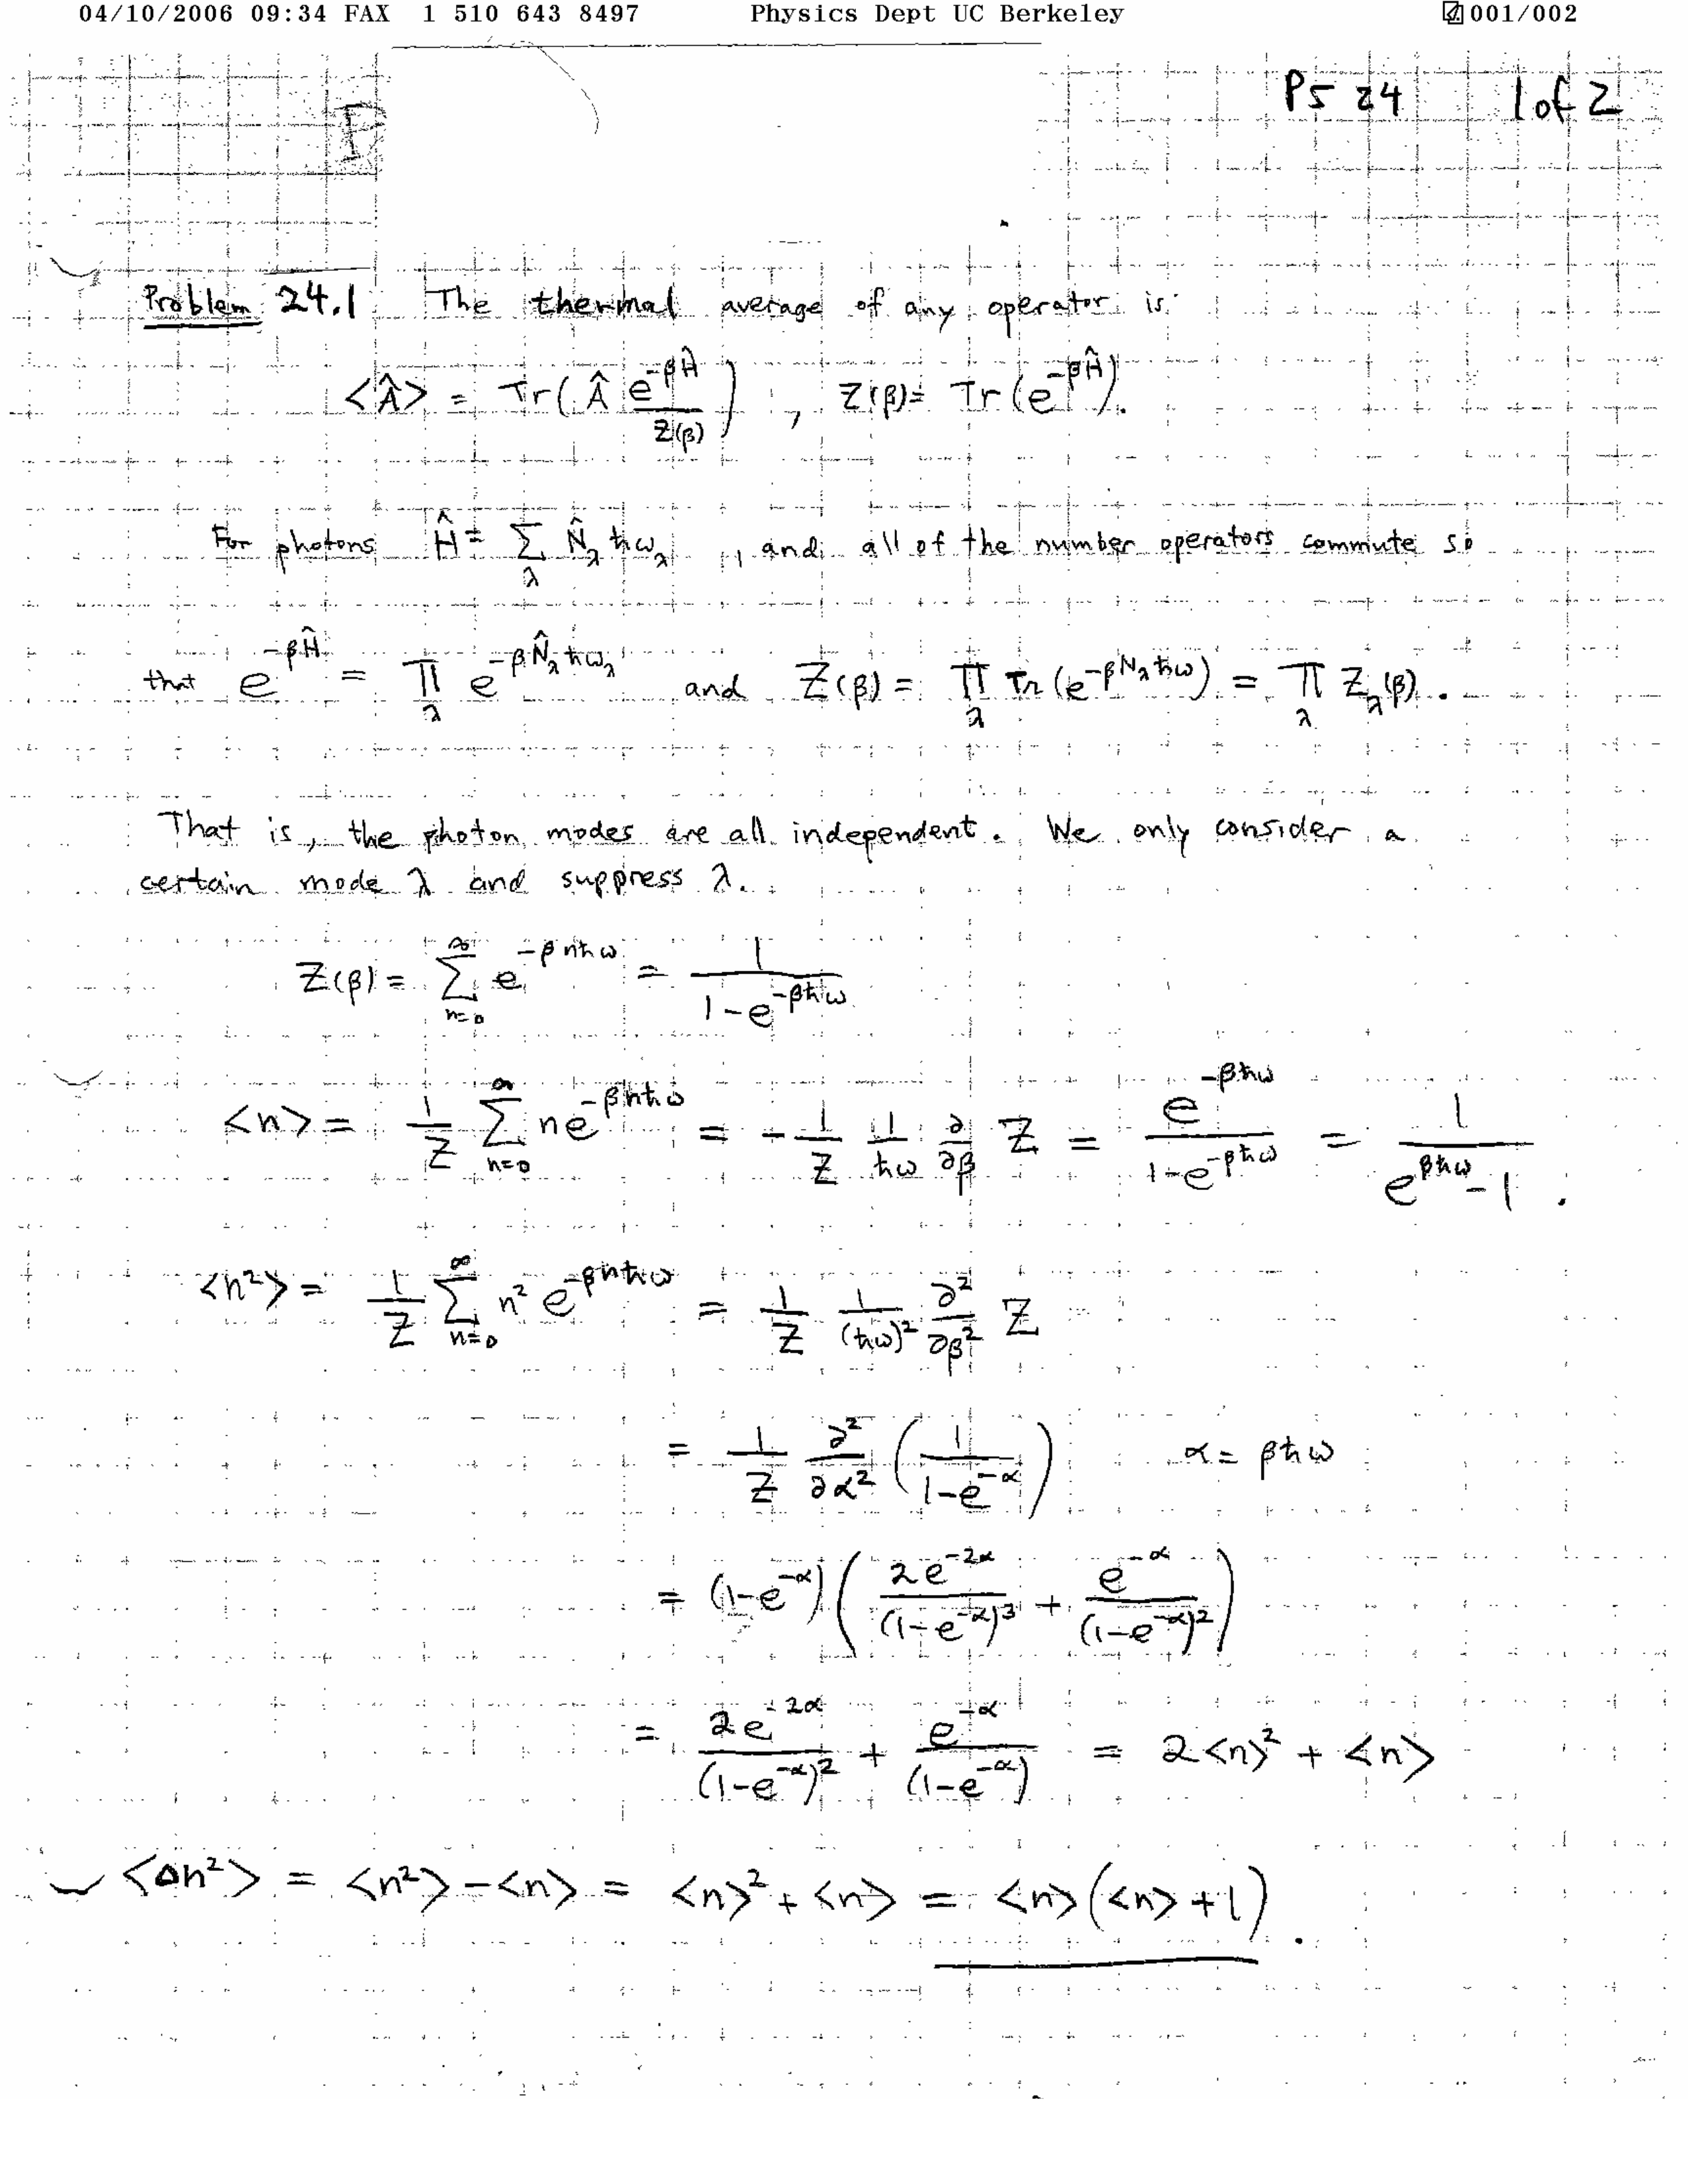 04/10/2006 09:34 FAX 1 510 643 8497 Physics Dept UC Berkeley 001/002
PS 24 1 of 2
P
Problem 24.1 The thermal average of any operator is:
<Â> = Tr( Â e^{-βĤ} / Z(β) ) , Z(β) = Tr(e^{-βĤ}).
For photons Ĥ = Σ_λ N̂_λ ħω_λ , and all of the number operators commute so
that e^{-βĤ} = Π_λ e^{-βN̂_λħω_λ} and Z(β) = Π_λ Tr(e^{-βN_λħω}) = Π_λ Z_λ(β).
That is, the photon modes are all independent. We only consider a
certain mode λ and suppress λ.
Z(β) = Σ_{n=0}^{∞} e^{-βnħω} = 1 / (1-e^{-βħω})
<n> = 1/Z Σ_{n=0}^{∞} n e^{-βnħω} = - 1/Z 1/ħω ∂/∂β Z = e^{-βħω} / (1-e^{-βħω}) = 1 / (e^{βħω} - 1) .
<n²> = 1/Z Σ_{n=0}^{∞} n² e^{-βnħω} = 1/Z 1/(ħω)² ∂²/∂β² Z
= 1/Z ∂²/∂α² ( 1 / (1-e^{-α}) ) α = βħω
= (1-e^{-α}) ( 2e^{-2α} / (1-e^{-α})³ + e^{-α} / (1-e^{-α})² )
= 2e^{-2α} / (1-e^{-α})² + e^{-α} / (1-e^{-α}) = 2<n>² + <n>
<Δn²> = <n²> - <n> = <n>² + <n> = <n>(<n> + 1) .